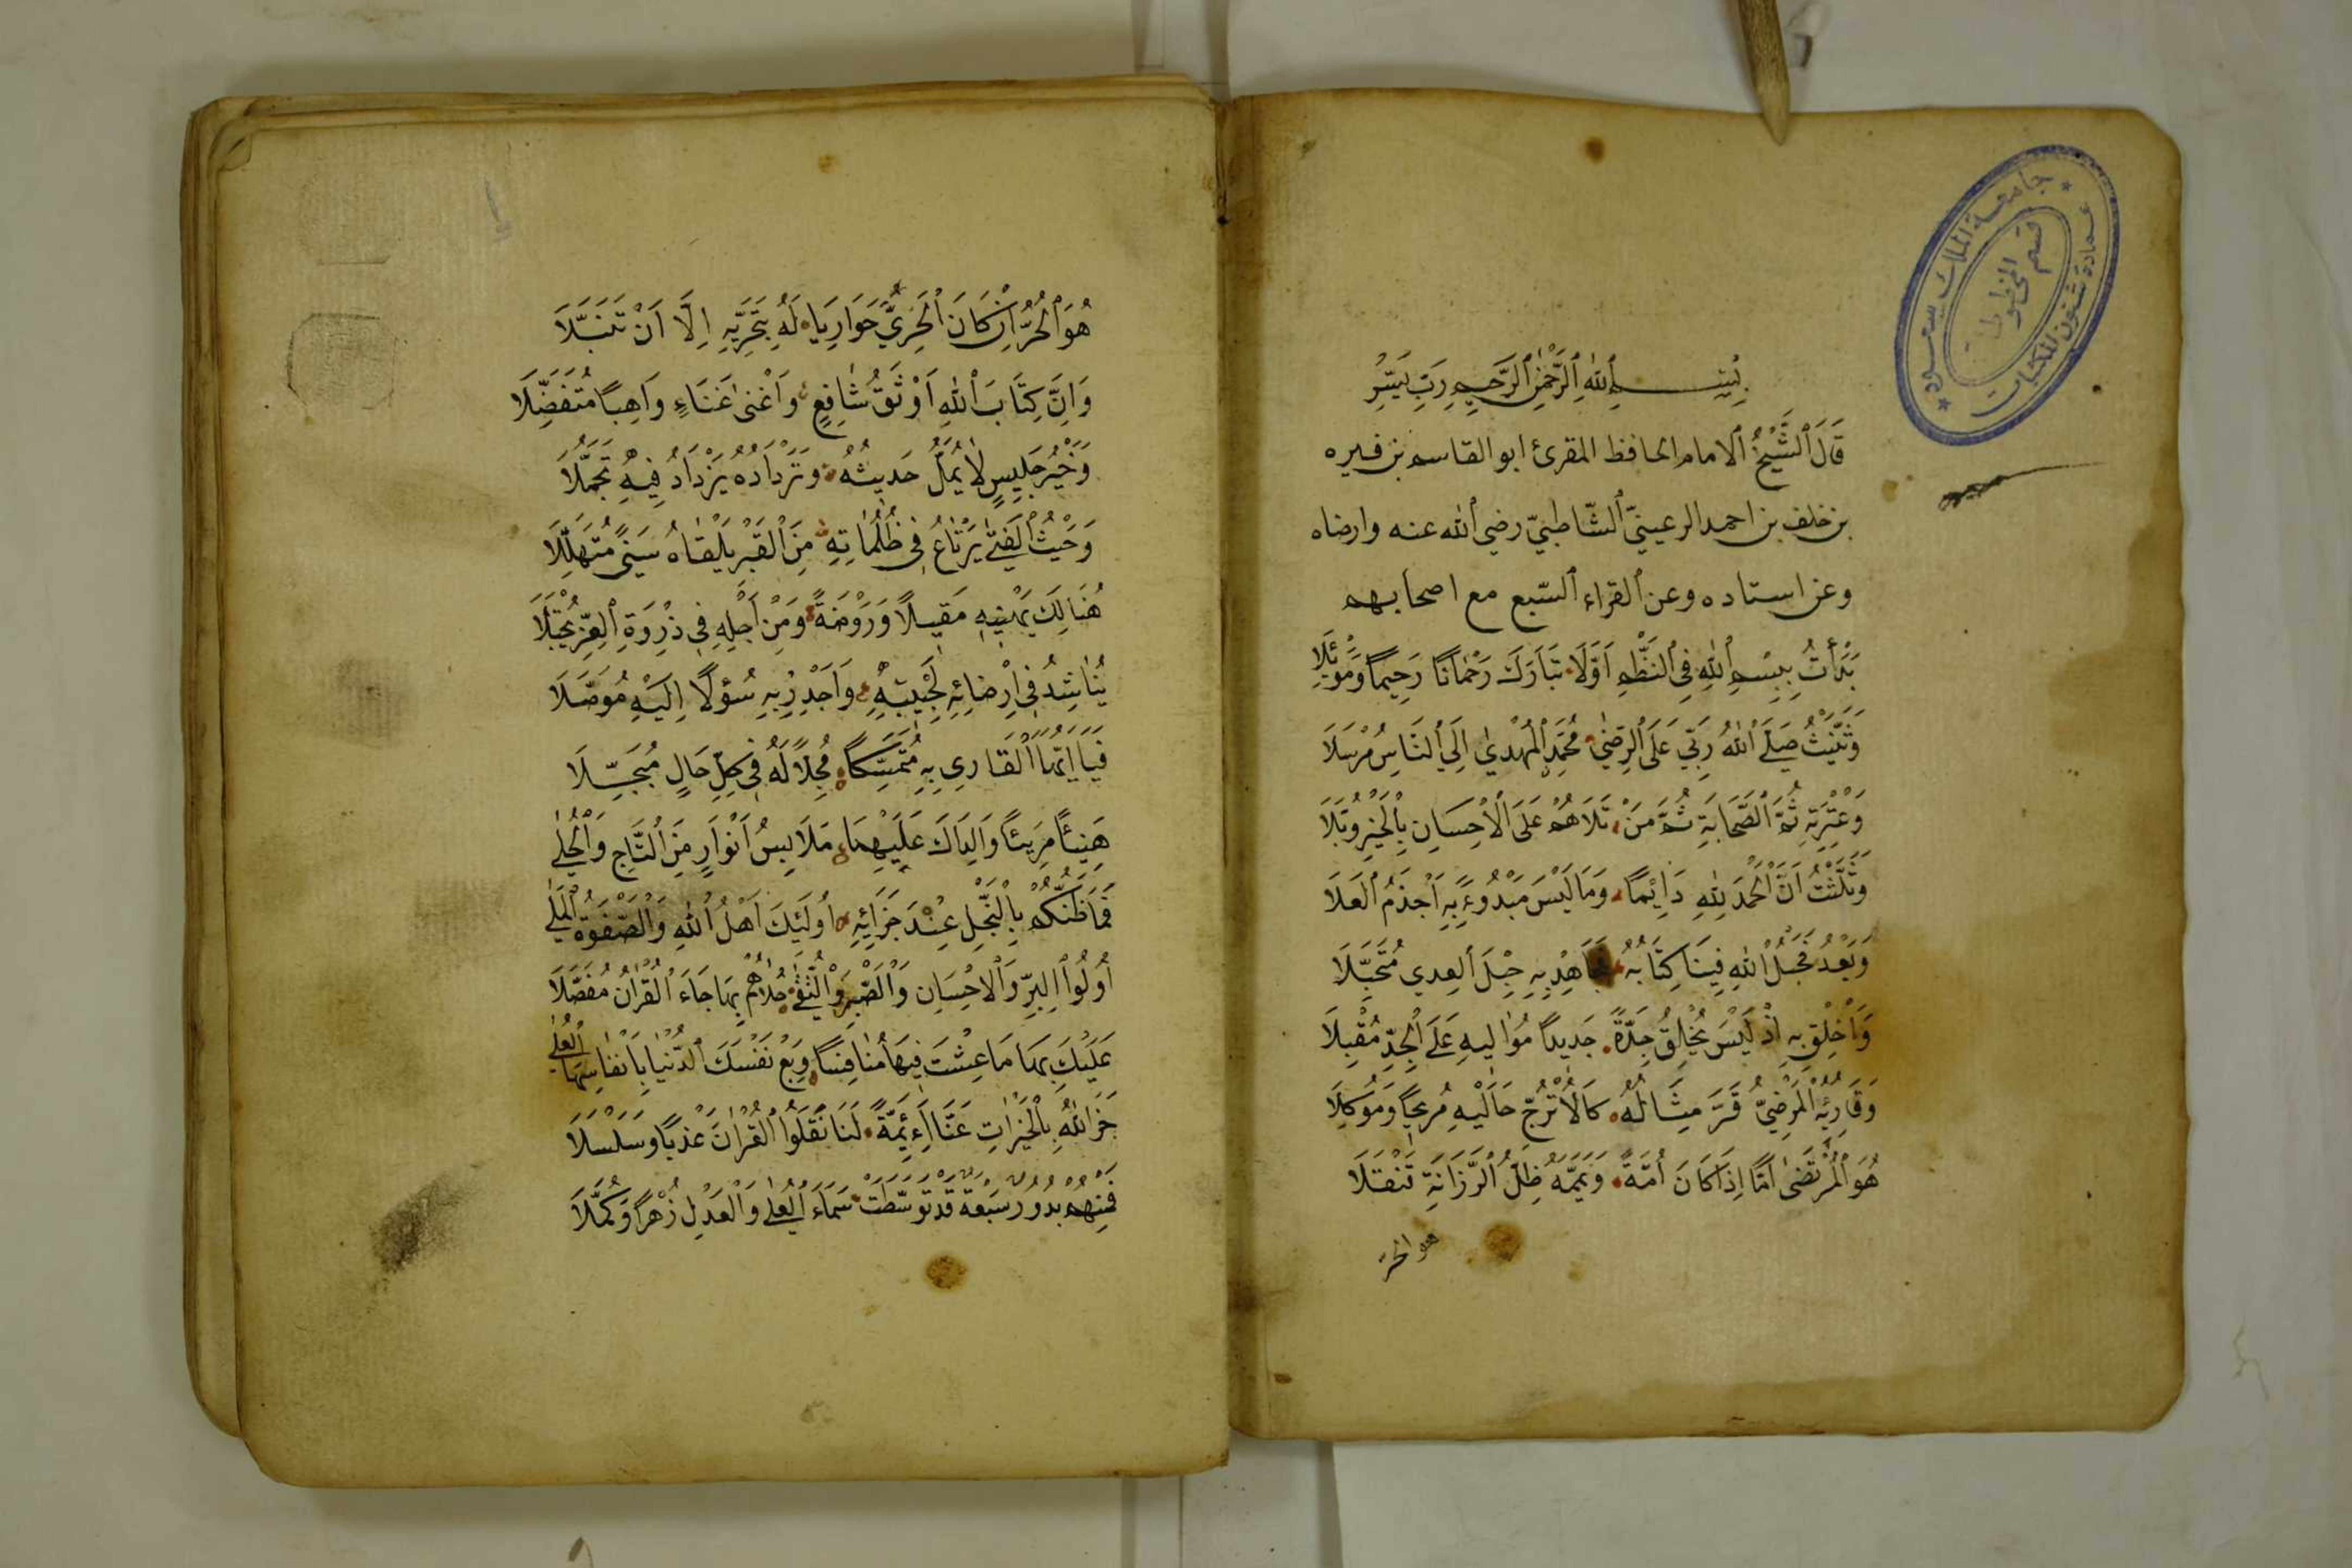 بِسْمِ ٱللهِ ٱلرَّحْمٰنِ ٱلرَّحِيمِ رَبِّ يَسِّرْ
قَالَ ٱلشَّيْخُ ٱلامام الحافظ المقرئ ابو القاسم بن فيره
بن خلف بن احمد الرعينيّ ٱلشّاطبيّ رضي ٱلله عنه وارضاه
وعن استاده وعن ٱلقراء ٱلسّبع مع اصحابهم
بَدَأْتُ بِبِسْمِ ٱللهِ فِي ٱلنَّظْمِ اَوَّلَا تَبَارَكَ رَحْمَانًا رَحِيمًا وَمَوْئِلَا
وَثَنَّيْتُ صَلَّى ٱللهُ رَبِّي عَلَى ٱلرِّضٰى مُحَمَّدٍ ٱلْمُهْدٰي اِلَي ٱلنَّاسِ مُرْسَلَا
وَعِتْرَتِهِ ثُمَّ ٱلصَّحَابَةِ ثُمَّ مَنْ تَلَاهُمْ عَلَى ٱلْاِحْسَانِ بِٱلْخَيْرِ وُبَّلَا
وَثَلَّثْتُ اَنَّ ٱلْحَمْدَ لِلّٰهِ دَائِمًا وَمَا لَيْسَ مَبْدُوءًا بِهِ اَجْذَمُ ٱلْعَلَا
وَبَعْدُ فَحَبْلُ ٱللهِ فِينَا كِتَابُهُ فَجَاهِدْ بِهِ حِبْلَ ٱلعِدي مُتَحَبِّلَا
وَاَخْلِقْ بِهِ اِذْ لَيْسَ يُخْلِقُ جِدَّةً جَدِيدًا مُوَالِيهِ عَلَى ٱلْجِدِّ مُقْبِلَا
وَقَارِئُهُ ٱلْمَرْضِيُّ قَرَّ مِثَالُهُ كَالْاُتْرُجِّ حَالَيْهِ مُرِيحًا وَمُوكِلَا
هُوَ ٱلْمُرْتَضٰى اَمًّا اِذَا كَانَ اُمَّةً وَيَمَّمَهُ ظِلُّ ٱلرَّزَانَةِ قَنْقَلَا
هو الحر
جامعة الملك سعود
عمادة شئون المكتبات
قسم المخطوطات
هُوَ ٱلْحُرُّ اِنْ كَانَ ٱلْحَرِيُّ حَوَارِيًا لَهُ بِتَحَرِّيهِ اِلَى اَنْ تَنَبَّلَا
وَاِنَّ كِتَابَ ٱللهِ اَوْثَقُ شَافِعٍ وَاَغْنٰى غَنَاءٍ وَاهِبًا مُتَفَضِّلَا
وَخَيْرُ جَلِيسٍ لَا يُمَلُّ حَدِيثُهُ وَتَرْدَادُهُ يَزْدَادُ فِيهِ تَجَمُّلَا
وَحَيْثُ ٱلْفَتٰى يَرْتَاعُ فِي ظُلُمَاتِهِ مِنَ ٱلْقَبْرِ يَلْقَاهُ سَنًى مُتَهَلِّلَا
هُنَالِكَ يَهْنِيهِ مَقِيلًا وَرَوْضَةً وَمِنْ اَجْلِهِ فِي ذِرْوَةِ ٱلْعِزِّ يُجْتَلَا
يُنَاشِدُ فِي اِرْضَائِهِ لِحَبِيبِهِ وَاَجْدِرْ بِهِ سُؤْلًا اِلَيْهِ مُوَصَّلَا
فَيَا اَيُّهَا ٱلْقَارِي بِهِ مُتَمَسِّكًا مُجِلًّا لَهُ فِي كُلِّ حَالٍ مُبَجِّلَا
هَنِيئًا مَرِيئًا وَالِدَاكَ عَلَيْهِمَا مَلَابِسُ اَنْوَارٍ مِنَ ٱلتَّاجِ وَٱلْحُلٰى
فَمَا ظَنُّكُمْ بِٱلنَّجْلِ عِنْدَ جَزَائِهِ اُولَئِكَ اَهْلُ ٱللهِ وَٱلصَّفْوَةُ ٱلْمَلٰى
اُولُوا ٱلبِرِّ وَٱلْاِحْسَانِ وَٱلصَّبْرِ وَٱلتُّقٰى حُلَاهُمْ بِهَا جَاءَ ٱلْقُرَانُ مُفَصَّلَا
عَلَيْكَ بِهَا مَا عِشْتَ فِيهَا مُنَافِسًا وَبِعْ نَفْسَكَ ٱلدُّنْيَا بِاَنْفَاسِهَا ٱلْعُلٰى
جَزَ اللهُ بِٱلْخَيْرَاتِ عَنَّا اَئِمَّةً لَنَا نَقَلُوا ٱلْقُرْانَ عَذْبًا وَسَلْسَلَا
فَمِنْهُمْ بُدُورٌ سَبْعَةٌ قَدْ تَوَسَّطَتْ سَمَاءَ ٱلْعُلٰى وَٱلْعَدْلِ زُهْرًا وَكُمَّلَا